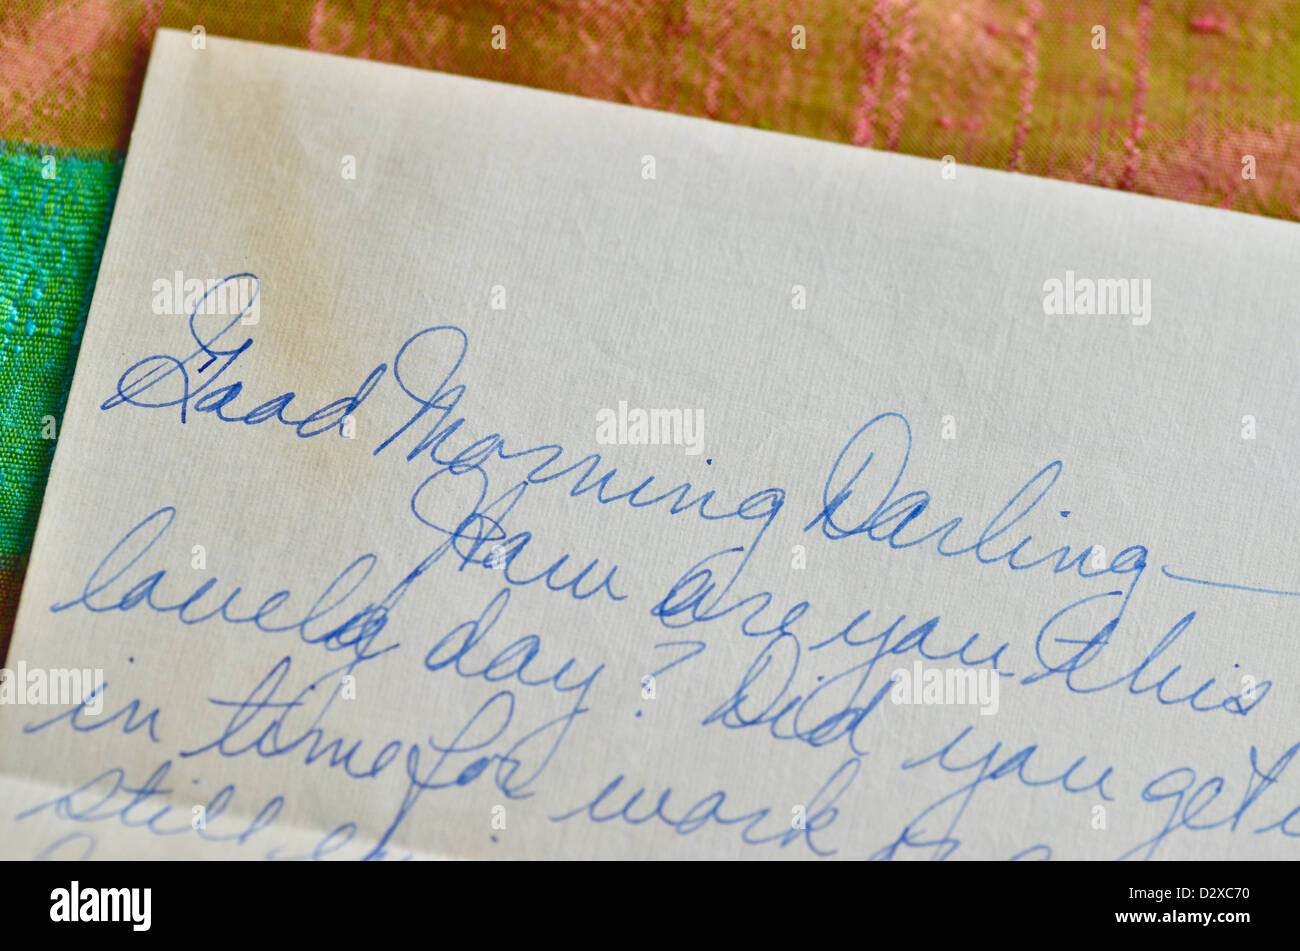 Good Morning Darling —
How are you this
lovely day? Did you get
in time for work
still
alamy
Image ID: D2XC70
www.alamy.com